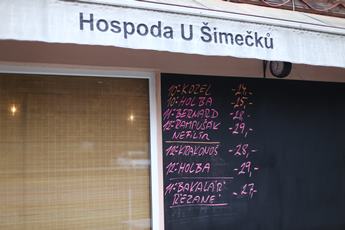 Hospoda U Šimečků
10° KOZEL -24,-
10° HOLBA -25,-
11° BERNARD -28,-
12° RAMPUŠÁK -29,-
NEFILTR
12° KRAKONOŠ -28,-
12° HOLBA -29,-
11° BAKALÁŘ -27,-
ŘEZANÉ